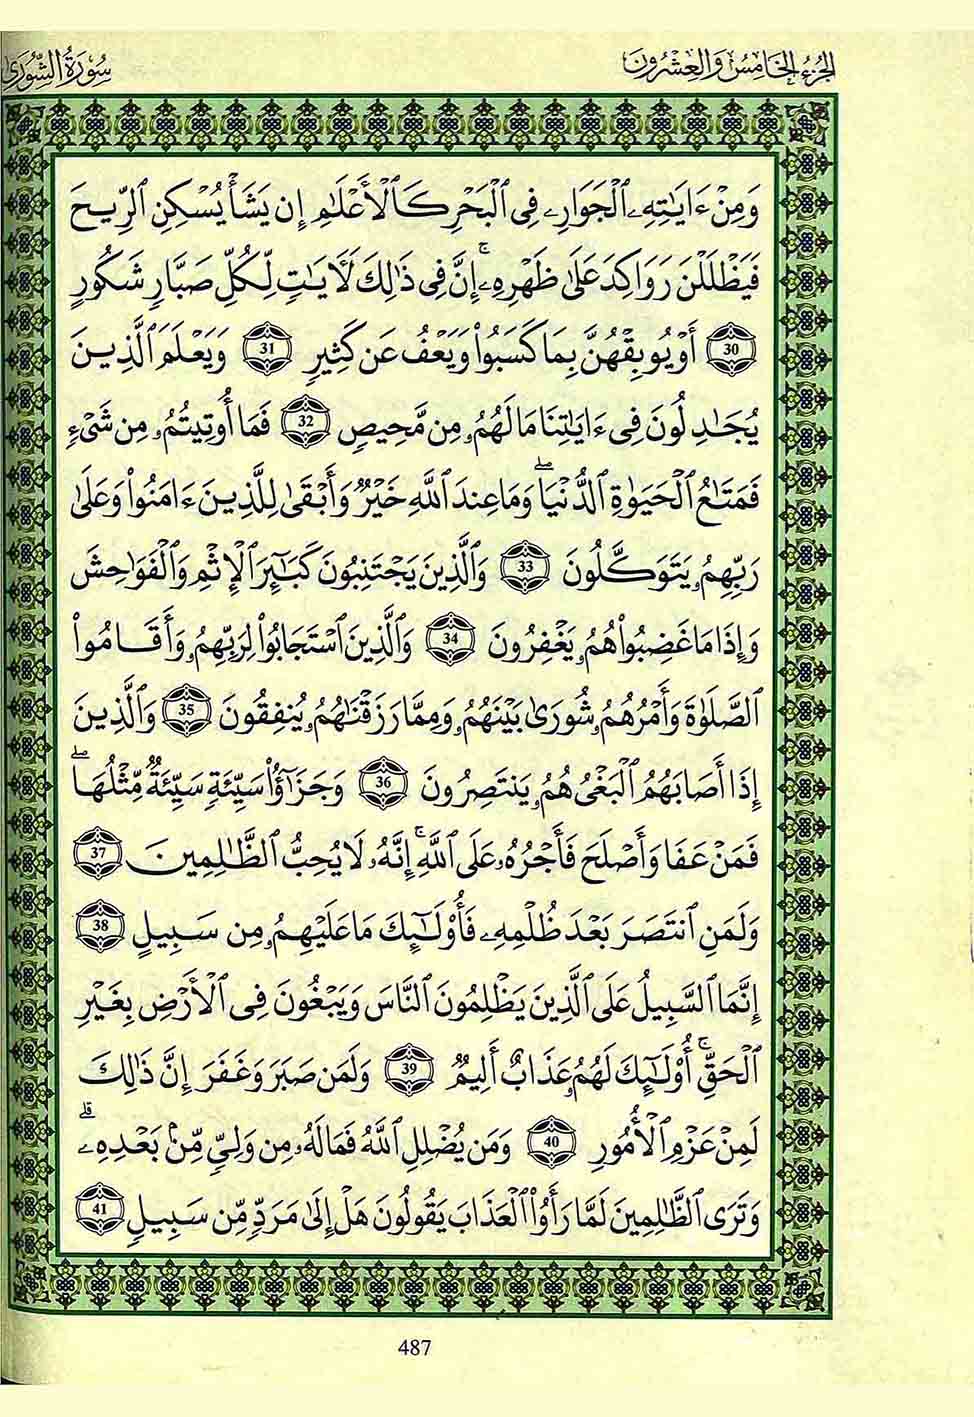 الجزء الخامس والعشرون
سورة الشورى
وَمِنْ ءَايَٰتِهِۦ اِ۬لْجَوَارِۦ فِى اِ۬لْبَحْرِ كَالْأَعْلَٰمِ إِن يَشَأْ يُسْكِنِ اِ۬لرِّيحَ
فَيَظْلَلْنَ رَوَاكِدَ عَلَىٰ ظَهْرِهِۦٓۚ إِنَّ فِى ذَٰلِكَ لَأٓيَٰتٍ لِّكُلِّ صَبَّارٍ شَكُورٍ
30 أَوْ يُوبِقْهُنَّ بِمَا كَسَبُواْ وَيَعْفُ عَن كَثِيرٍ 31 وَيَعْلَمَ اَ۬لَّذِينَ
يُجَٰدِلُونَ فِىٓ ءَايَٰتِنَا مَا لَهُمُۥ مِن مَّحِيصٍ 32 فَمَآ أُوتِيتُمُۥ مِن شَىْءٍ
فَمَتَٰعُ اُ۬لْحَيَوٰةِ اِ۬لدُّنْيَاۖ وَمَا عِندَ اَ۬للَّهِ خَيْرٌ وَأَبْقَىٰ لِلَّذِينَ ءَامَنُواْ وَعَلَىٰ
رَبِّهِمُۥ يَتَوَكَّلُونَ 33 وَالَّذِينَ يَجْتَنِبُونَ كَبَٰٓئِرَ اَ۬لْإِثْمِ وَالْفَوَٰحِشَ
وَإِذَا مَا غَضِبُواْ هُمُۥ يَغْفِرُونَ 34 وَالَّذِينَ اَ۪سْتَجَابُواْ لِرَبِّهِمُۥ وَأَقَامُواْ
اُ۬لصَّلَوٰةَ وَأَمْرُهُمُۥ شُورَىٰ بَيْنَهُمُۥ وَمِمَّا رَزَقْنَٰهُمُۥ يُنفِقُونَ 35 وَالَّذِينَ
إِذَآ أَصَابَهُمُ اُ۬لْبَغْىُ هُمُۥ يَنتَصِرُونَ 36 وَجَزَٰٓؤُاْ سَيِّئَةٍ سَيِّئَةٌ مِّثْلُهَاۖ
فَمَنْ عَفَا وَأَصْلَحَ فَأَجْرُهُۥ عَلَى اَ۬للَّهِۚ إِنَّهُۥ لَا يُحِبُّ اُ۬لظَّٰلِمِينَ 37
وَلَمَنِ اِ۪نتَصَرَ بَعْدَ ظُلْمِهِۦ فَأُوْلَٰٓئِكَ مَا عَلَيْهِمُۥ مِن سَبِيلٍ 38
إِنَّمَا اَ۬لسَّبِيلُ عَلَى اَ۬لَّذِينَ يَظْلِمُونَ اَ۬لنَّاسَ وَيَبْغُونَ فِى اِ۬لْأَرْضِ بِغَيْرِ
اِ۬لْحَقِّۚ أُوْلَٰٓئِكَ لَهُمُۥ عَذَابٌ أَلِيمٌ 39 وَلَمَن صَبَرَ وَغَفَرَ إِنَّ ذَٰلِكَ
لَمِنْ عَزْمِ اِ۬لْأُمُورِ 40 وَمَن يُضْلِلِ اِ۬للَّهُ فَمَا لَهُۥ مِن وَلِىٍّ مِّنۢ بَعْدِهِۦۗ
وَتَرَى اَ۬لظَّٰلِمِينَ لَمَّا رَأَوُاْ اُ۬لْعَذَابَ يَقُولُونَ هَلْ إِلَىٰ مَرَدٍّ مِّن سَبِيلٍ 41
487